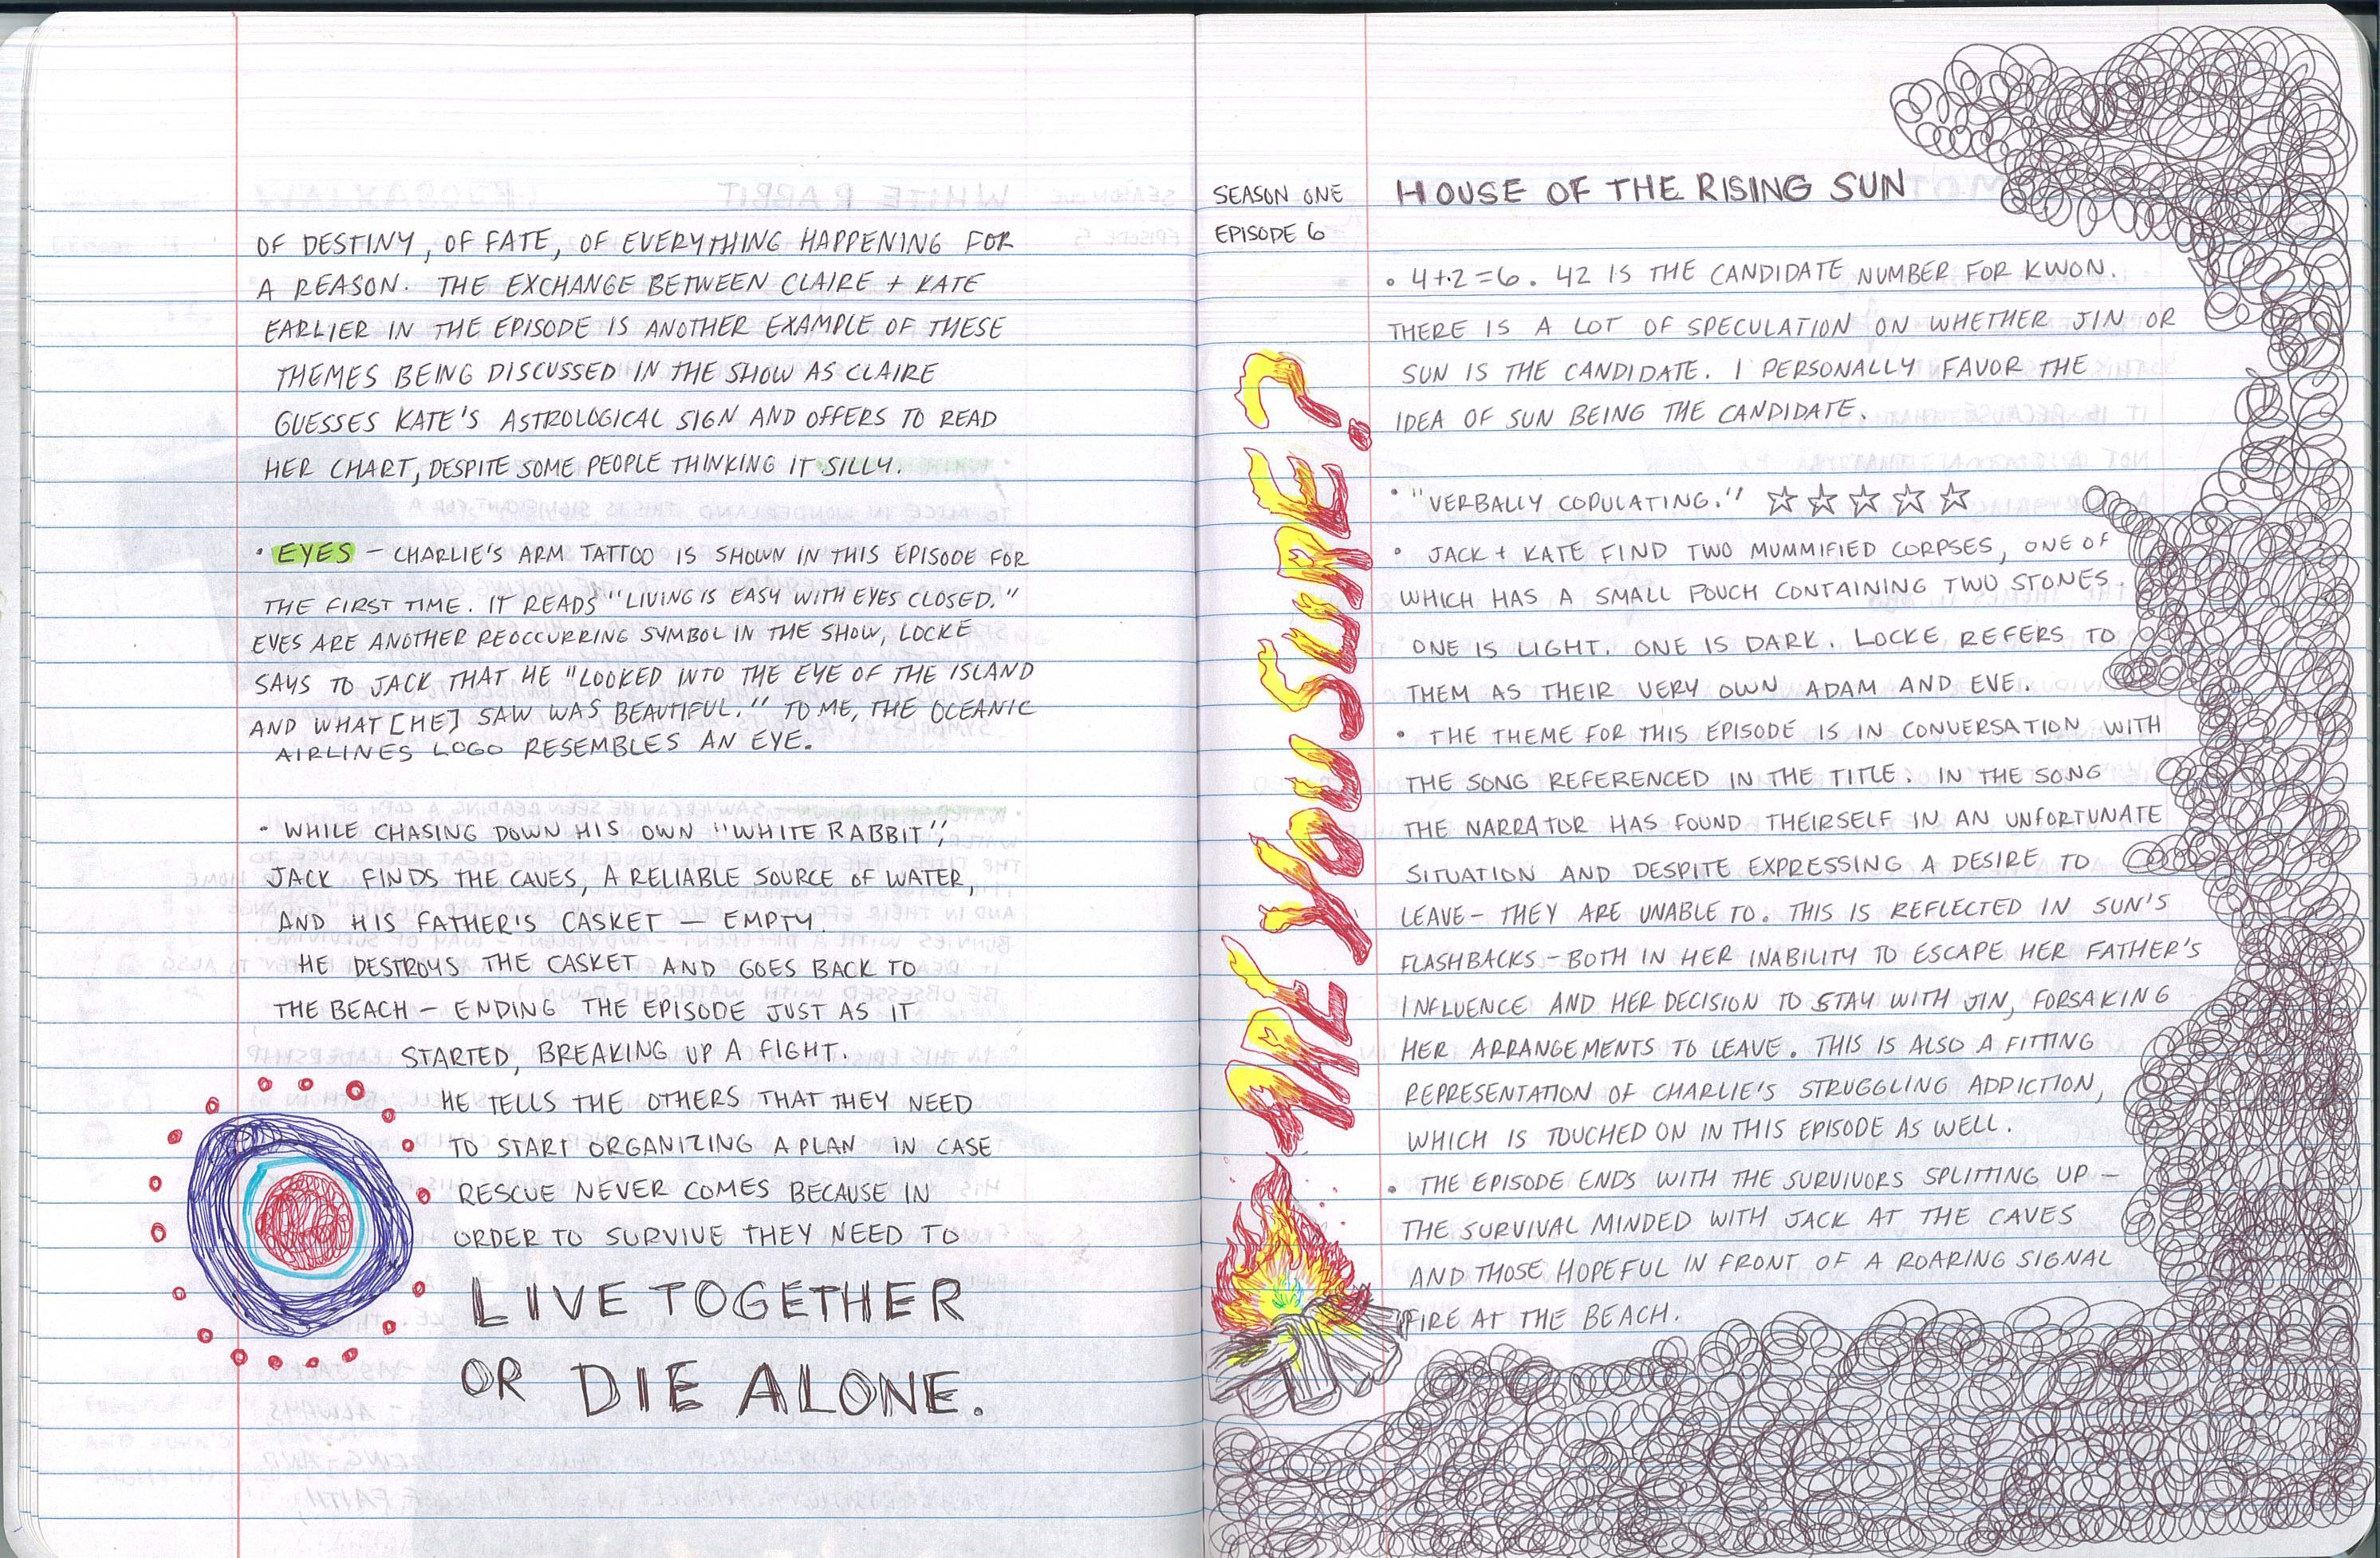 OF DESTINY, OF FATE, OF EVERYTHING HAPPENING FOR
A REASON. THE EXCHANGE BETWEEN CLAIRE + KATE
EARLIER IN THE EPISODE IS ANOTHER EXAMPLE OF THESE
THEMES BEING DISCUSSED IN THE SHOW AS CLAIRE
GUESSES KATE'S ASTROLOGICAL SIGN AND OFFERS TO READ
HER CHART, DESPITE SOME PEOPLE THINKING IT SILLY.
• EYES – CHARLIE'S ARM TATTOO IS SHOWN IN THIS EPISODE FOR
THE FIRST TIME. IT READS "LIVING IS EASY WITH EYES CLOSED."
EYES ARE ANOTHER REOCCURRING SYMBOL IN THE SHOW, LOCKE
SAYS TO JACK THAT HE "LOOKED INTO THE EYE OF THE ISLAND
AND WHAT [HE] SAW WAS BEAUTIFUL." TO ME, THE OCEANIC
AIRLINES LOGO RESEMBLES AN EYE.
• WHILE CHASING DOWN HIS OWN "WHITE RABBIT",
JACK FINDS THE CAVES, A RELIABLE SOURCE OF WATER,
AND HIS FATHER'S CASKET – EMPTY.
HE DESTROYS THE CASKET AND GOES BACK TO
THE BEACH – ENDING THE EPISODE JUST AS IT
STARTED, BREAKING UP A FIGHT.
HE TELLS THE OTHERS THAT THEY NEED
TO START ORGANIZING A PLAN IN CASE
RESCUE NEVER COMES BECAUSE IN
ORDER TO SURVIVE THEY NEED TO
LIVE TOGETHER
OR DIE ALONE.
SEASON ONE
EPISODE 6
HOUSE OF THE RISING SUN
ARE YOU SURE?
• 4+2=6. 42 IS THE CANDIDATE NUMBER FOR KWON.
THERE IS A LOT OF SPECULATION ON WHETHER JIN OR
SUN IS THE CANDIDATE. I PERSONALLY FAVOR THE
IDEA OF SUN BEING THE CANDIDATE.
• "VERBALLY COPULATING." ☆ ☆ ☆ ☆ ☆
• JACK + KATE FIND TWO MUMMIFIED CORPSES, ONE OF
WHICH HAS A SMALL POUCH CONTAINING TWO STONES.
ONE IS LIGHT. ONE IS DARK. LOCKE REFERS TO
THEM AS THEIR VERY OWN ADAM AND EVE.
• THE THEME FOR THIS EPISODE IS IN CONVERSATION WITH
THE SONG REFERENCED IN THE TITLE. IN THE SONG
THE NARRATOR HAS FOUND THEIRSELF IN AN UNFORTUNATE
SITUATION AND DESPITE EXPRESSING A DESIRE TO
LEAVE – THEY ARE UNABLE TO. THIS IS REFLECTED IN SUN'S
FLASHBACKS – BOTH IN HER INABILITY TO ESCAPE HER FATHER'S
INFLUENCE AND HER DECISION TO STAY WITH JIN, FORSAKING
HER ARRANGEMENTS TO LEAVE. THIS IS ALSO A FITTING
REPRESENTATION OF CHARLIE'S STRUGGLING ADDICTION,
WHICH IS TOUCHED ON IN THIS EPISODE AS WELL.
• THE EPISODE ENDS WITH THE SURVIVORS SPLITTING UP –
THE SURVIVAL MINDED WITH JACK AT THE CAVES
AND THOSE HOPEFUL IN FRONT OF A ROARING SIGNAL
FIRE AT THE BEACH.